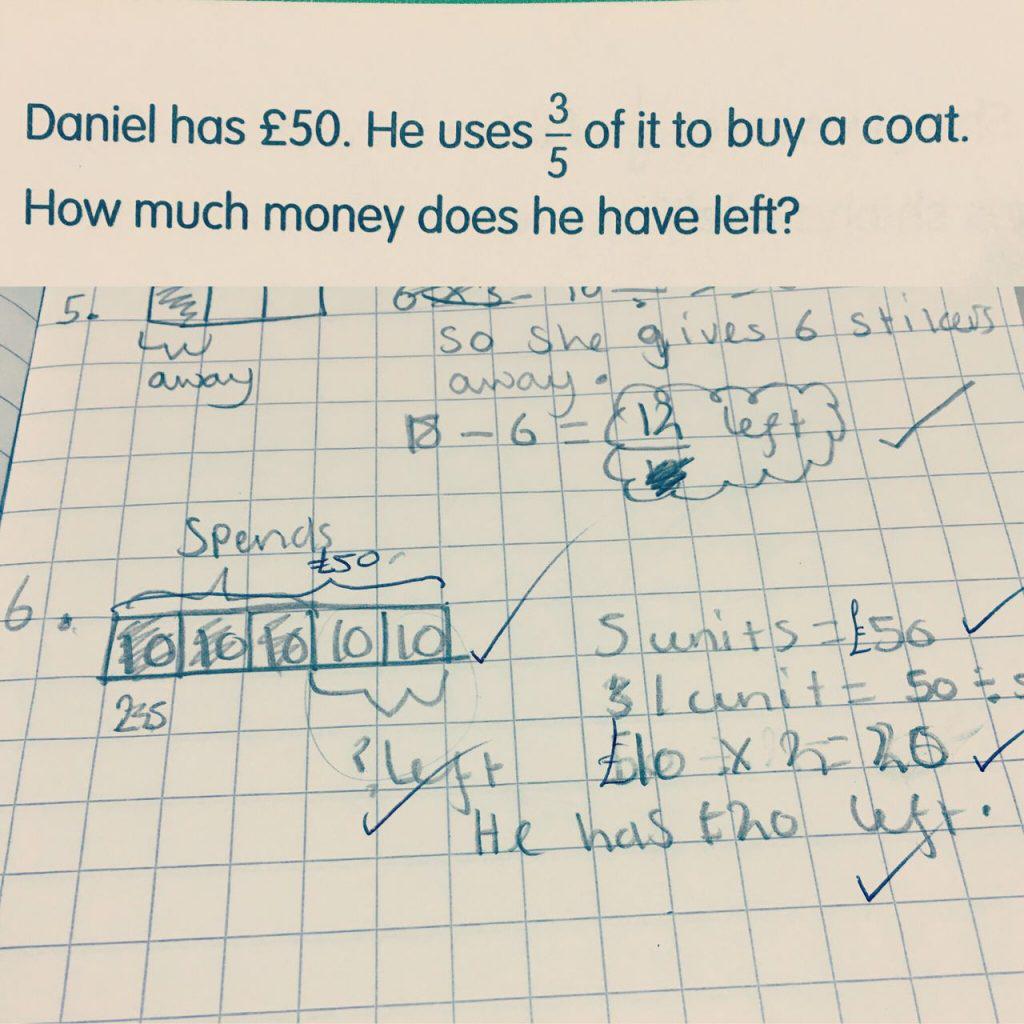 Daniel has £50. He uses 3/5 of it to buy a coat.
How much money does he have left?
5.
away
so she gives 6 stikers
away.
18 - 6 = 12 left
6.
Spends
£50
10 10 10 10 10
? left
5 units = £50
1 unit = 50 ÷ 5
£10 × 2 = 20
He has £20 left.